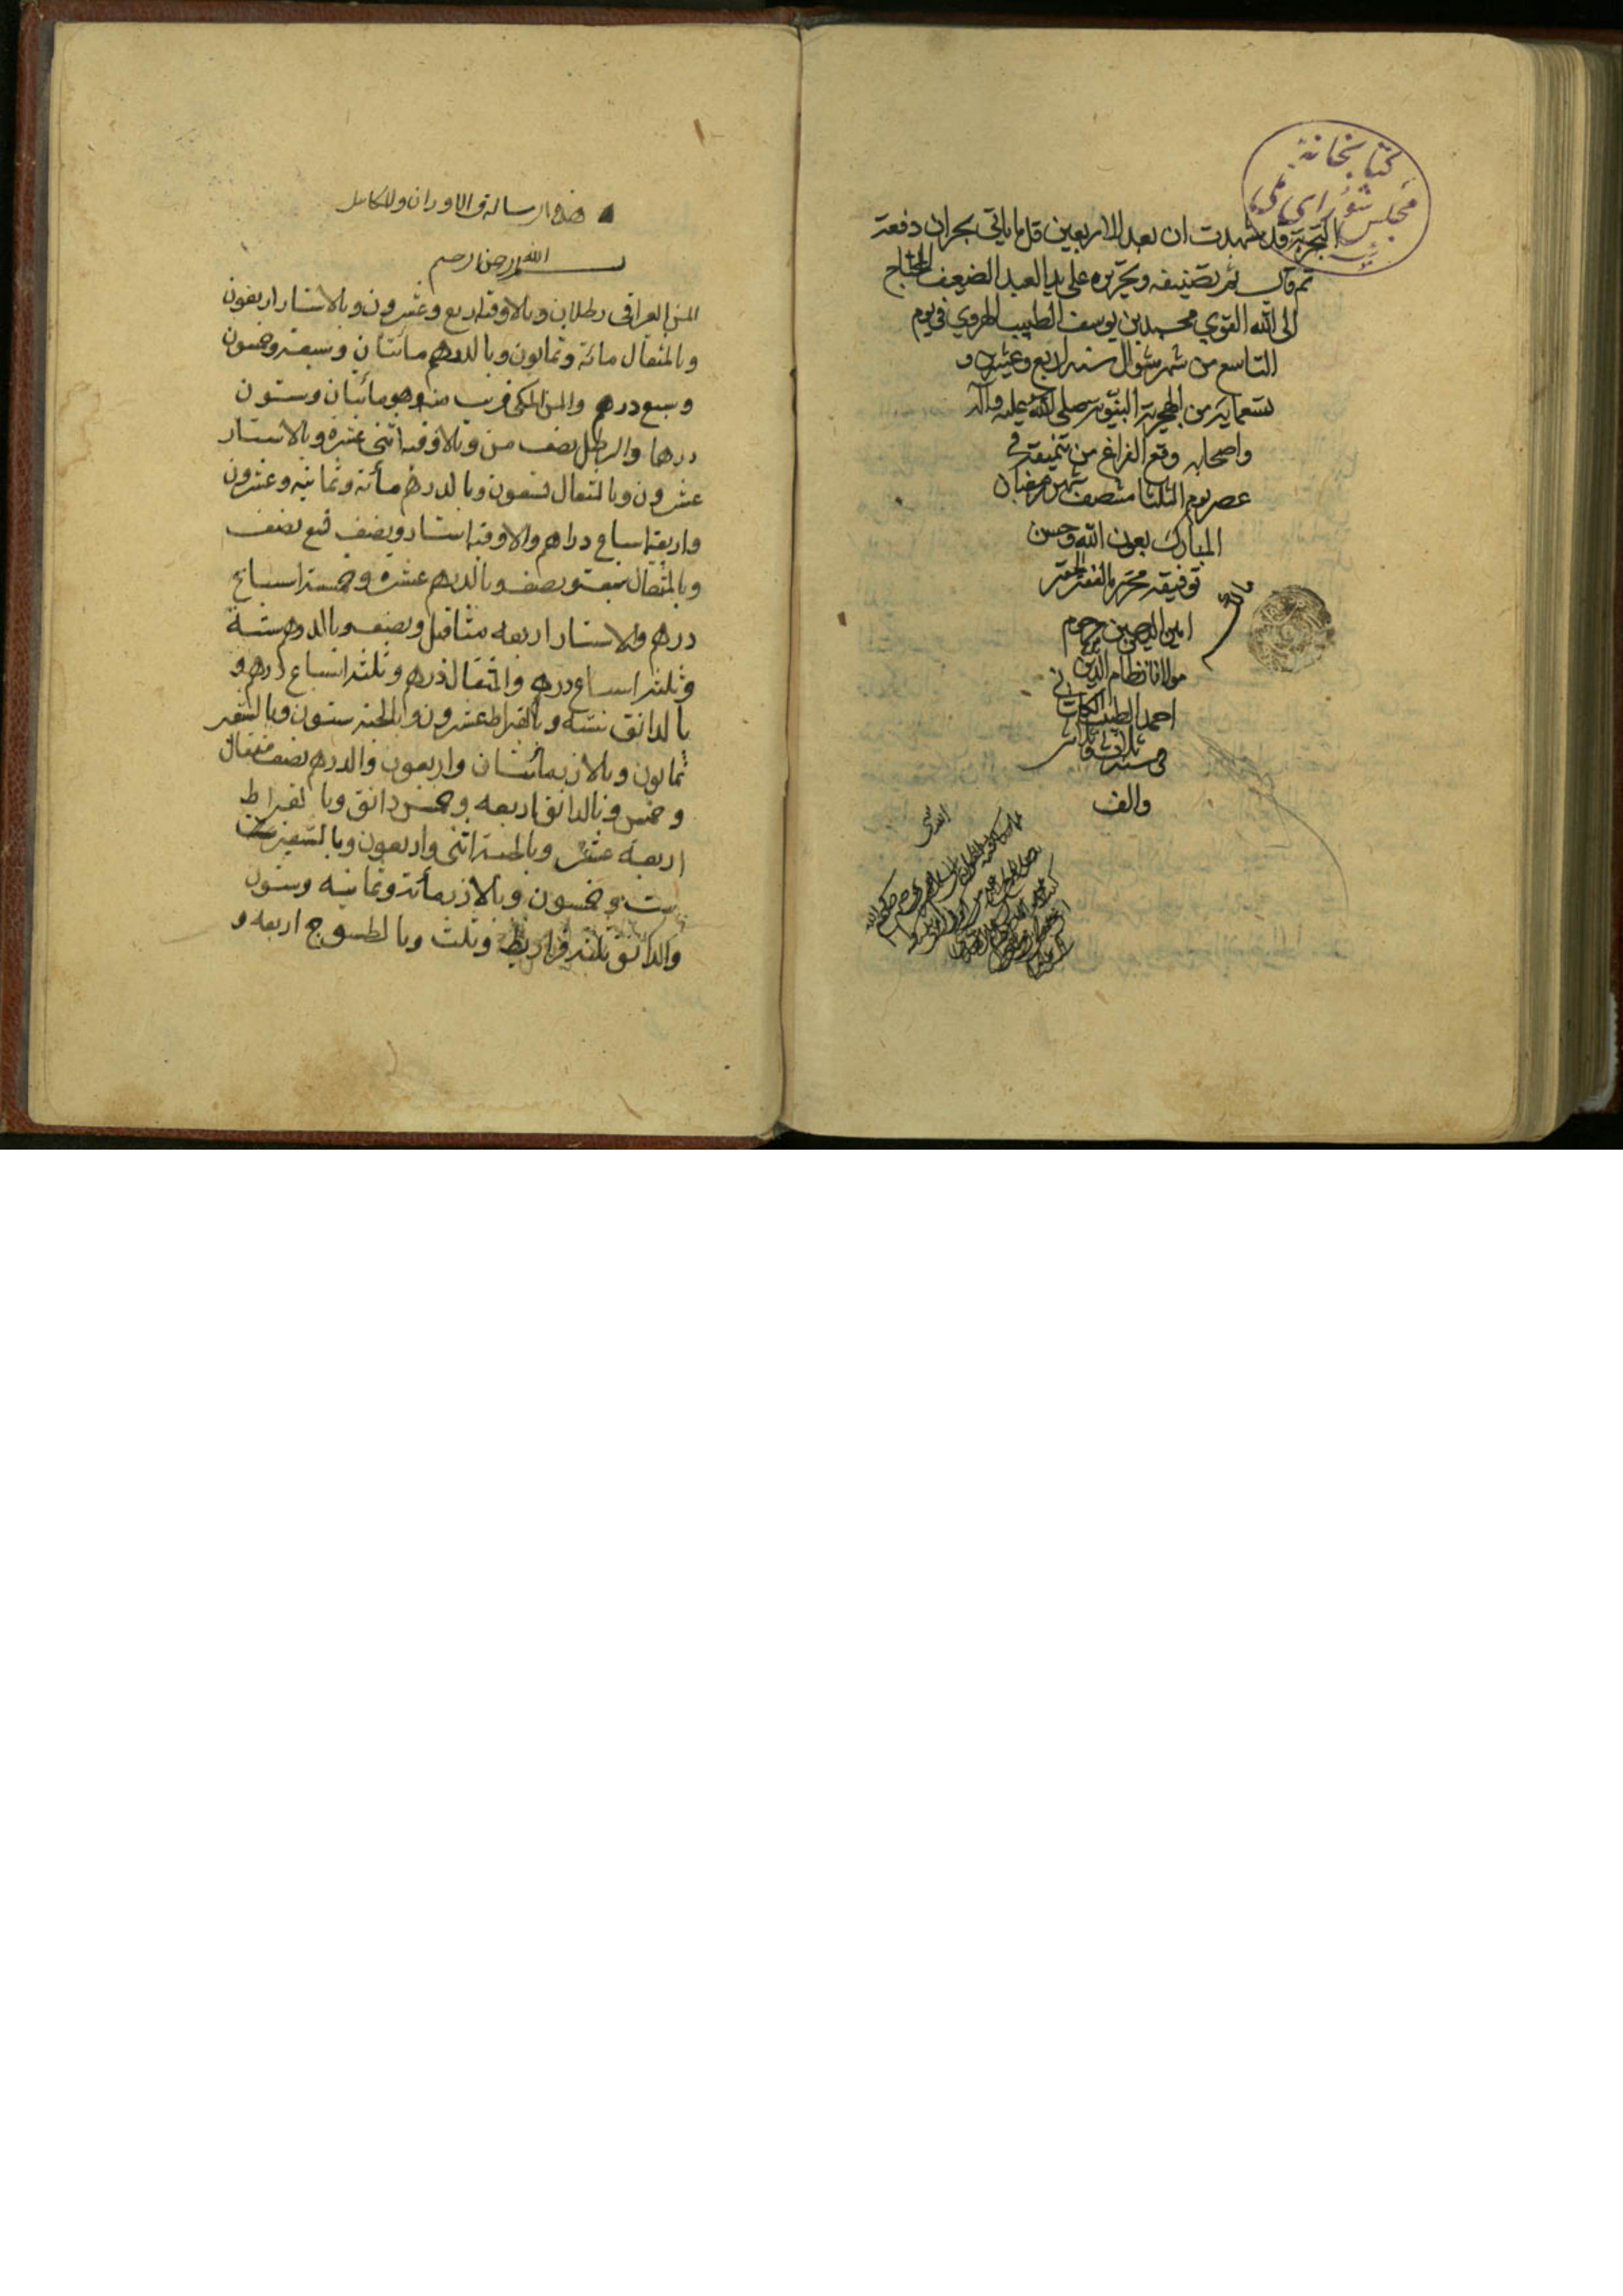 كتابخانهٔ
مجلس شورای ملی
التجربة قد شهدت ان بعد الاربعين قل ما ياتی بحران دفعة
تم تصنيفه وتحريره علی يد العبد الضعيف المحتاج
الی الله القوي محمد بن يوسف الطبيب الهروي في يوم
التاسع من شهر شوال سنه اربع وعشرين و
تسعماية من الهجرية النبوية صلی الله عليه وآله
واصحابه وقع الفراغ من تنميقه في
عصر يوم الثلثا منتصف شهر رمضان
المبارك بعون الله وحسن
توفيقه محرره الفقير الحقير
امين الدين حسين بن مرحوم
مولانا نظام الدين
احمد الطبيب
في سنه ثلاث وثلاثين
والف
هذه الرسالة فی الاوزان والمكاييل
بسم الله الرحمن الرحيم
المن العراقی رطلان وبالاوقيه اربع وعشرون وبالاستار اربعون
وبالمثقال مائة وثمانون وبالدرهم مائتان وسبعة وخمسون
وسبع درهم والمن المكی قريب منه وهو مائتان وستون
درهما والرطل نصف من وبالاوقيه اثنی عشره وبالاستار
عشرون وبالمثقال تسعون وبالدرهم مأئة وثمانيه وعشرون
واربعة اسباع دراهم والاوقيه استار ونصف مع نصف
وبالمثقال سبعة ونصف وبالدرهم عشره وخمسة اسباع
درهم والاستار اربعه مثاقيل ونصف وبالدرهم ستة
وثلثه اسباع درهم والمثقال درهم وثلثه اسباع درهم و
بالدانق سته وبالقيراط عشرون وبالحبه ستون وبالشعير
ثمانون وبالارزه مائتان واربعون والدرهم نصف مثقال
وخمس وبالدانق اربعه وخمس دانق وبالقيراط
اربعة عشر وبالحبه اثنی واربعون وبالشعيره
ست وخمسون وبالارزه مأئة وثمانيه وستون
والدانق ثلثه قراريط وثلث وبالطسوج اربعه و